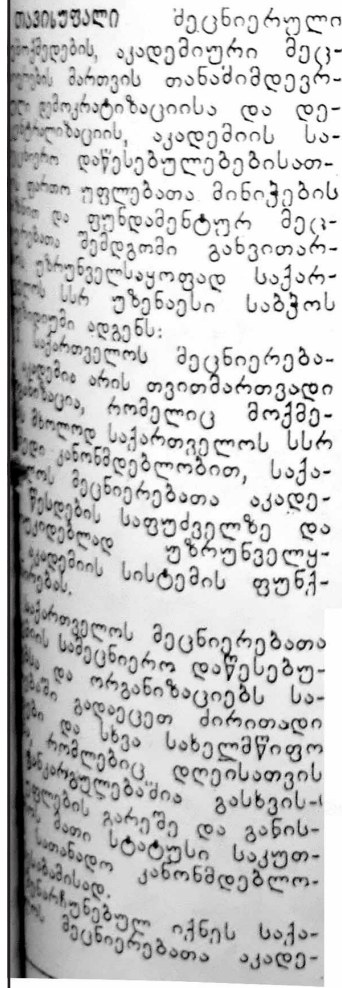 თავისუფალი მეცნიერული
აკადემიური მეც-
მართვის თანამიმდევრ-
დემოკრატიზაციისა და დე-
აკადემიის სა-
დაწესებულებებისათ-
ფართო უფლებათა მინიჭების
და ფუნდამენტურ მეც-
შემდგომი განვითარ-
უზრუნველსაყოფად საქარ-
სსრ უზენაესი საბჭოს
ადგენს:
საქართველოს მეცნიერება-
აკადემია არის თვითმართვადი
რომელიც მოქმე-
მხოლოდ საქართველოს სსრ
კანონმდებლობით, საქა-
მეცნიერებათა აკადე-
წესდების საფუძველზე და
უზრუნველყ-
აკადემიის სისტემის ფუნქ-
საქართველოს მეცნიერებათა
სამეცნიერო დაწესებუ-
და ორგანიზაციებს სა-
გადაეცეთ ძირითადი
და სხვა სახელმწიფო
რომლებიც დღეისათვის
გასხვის-
გარეშე და განის-
მათი სტატუსი საკუთ-
სათანადო კანონმდებლო-
იქნეს საქა-
მეცნიერებათა აკადე-